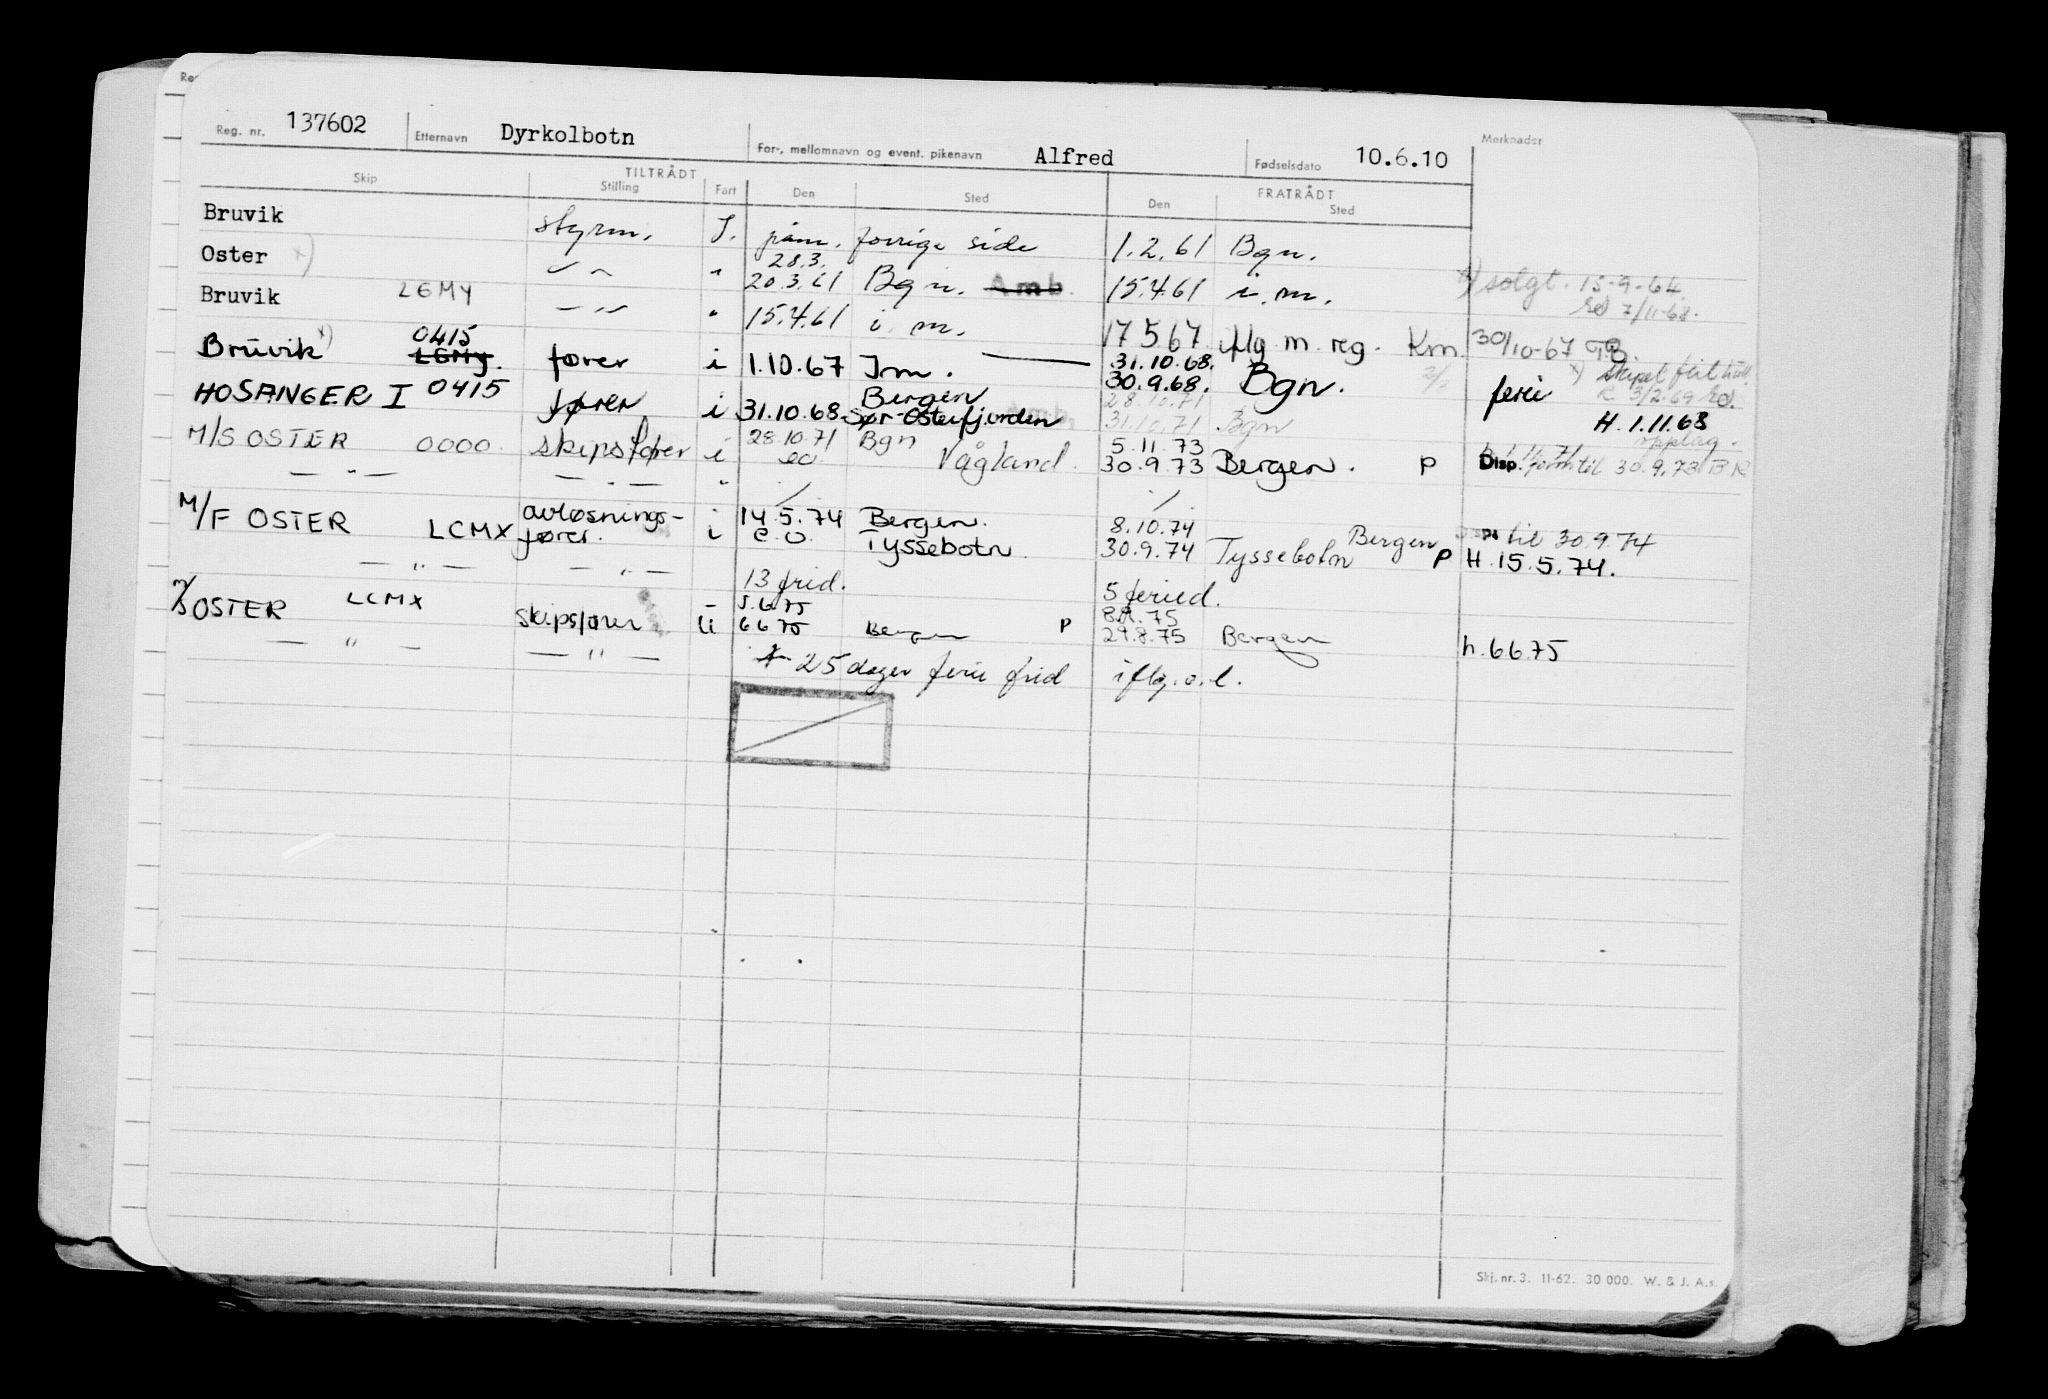 Reg. nr. 137602 Etternavn Dyrkolbotn For-, mellomnavn og event. pikenavn Alfred Fødselsdato 10.6.10 Merknader
TILTRÅDT FRATRÅDT
Skip Stilling Fart Den Sted Den Sted
Bruvik styrm. I. påm. forrige side 1.2.61 Bgn.
28.3.
Oster x) — " — " 20.3.61 Bgn. Amb. 15.4.61 i.m. x) solgt. 15-9-64
7/11-68.
Bruvik LEMY — " — " 15.4.61 i.m. 17 5 67 iflg. m. reg. Km. 30/10-67
0415 31.10.68.
Bruvik x) LEMY. fører i 1.10.67 Im. — 30.9.68. Bgn. ferie x) skipet
3/2.69
Bergen 28.10.71
HOSANGER I 0415 fører i 31.10.68 Sør-Osterfjorden Amb. 31.10.71 Bgn H. 1.11.68
opplag.
M/S OSTER 0000. skipsfører i 28.10.71 Bgn 5.11.73
— " — — " — " eo. Vågland. 30.9.73 Bergen. P Disp. til 30.9.73
M/F OSTER LCMX avløsnings- i 14.5.74 Bergen. 8.10.74 Bergen Disp. til 30.9.74
fører. i e.o. Tyssebotn. 30.9.74 Tyssebotn P H. 15.5.74.
— " — — " — 13 frid. 5 feried.
M/S OSTER LCMX skipsfører ii 5.6.75
6 6 75 Bergen P 29.8.75 Bergen h. 6 6 75
— " — — " — 25 dager ferie frid iflg. o.l.
Skj. nr. 3. 11-62. 30 000. W. & J. A.s.